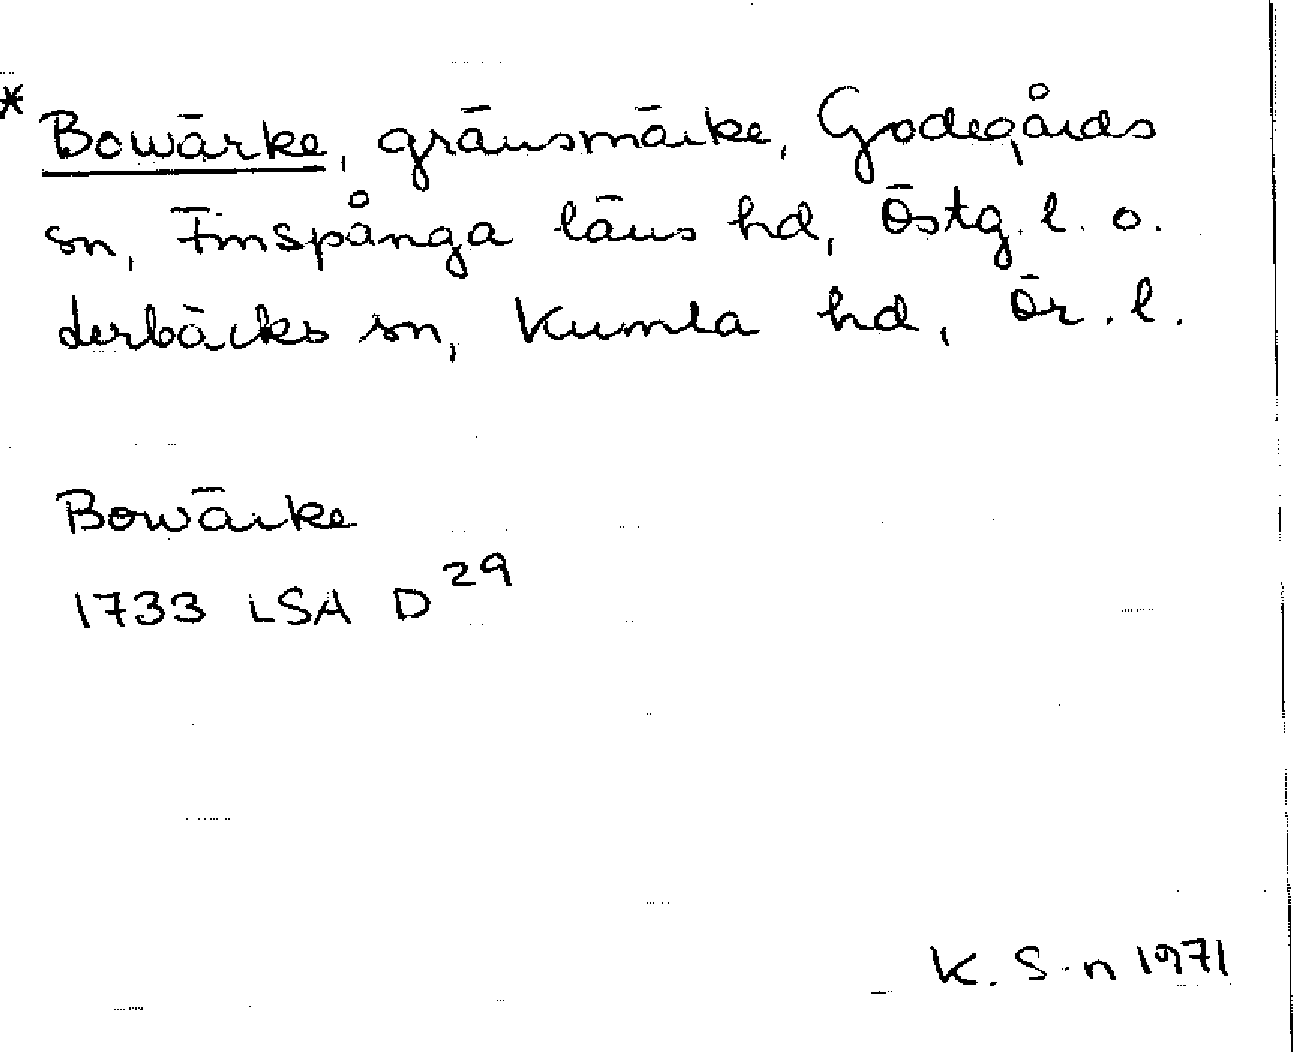 * Bowärke, gränsmärke, Godegårds
sn, Finspånga läns hd, Östg. l. o.
derbäcks sn, Kumla hd, Ör. l.
Bowärke
1733 LSA D 29
K. S-n 1971